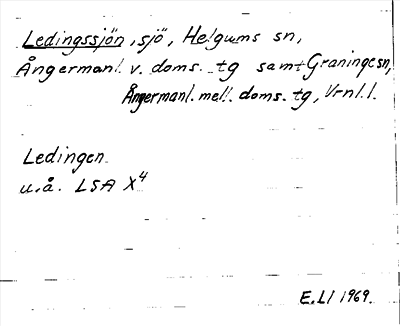 Ledingssjön, sjö, Helgums sn,
Ångermanl. v. doms. tg samt Graninge sn,
Ångermanl. mell. doms. tg, Vrnl.l.
Ledingen
u.å. LSA X4
E.Ll 1969.